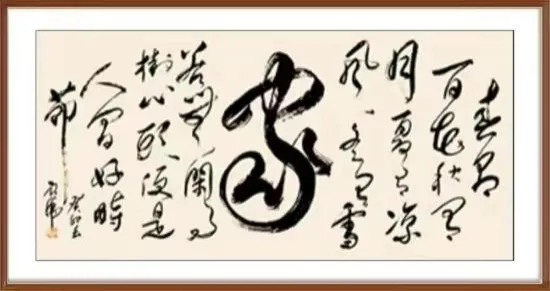 春有
百花秋有
月夏有凉
风冬有雪
家
若无闲事
挂心头便是
人间好时
节
癸卯